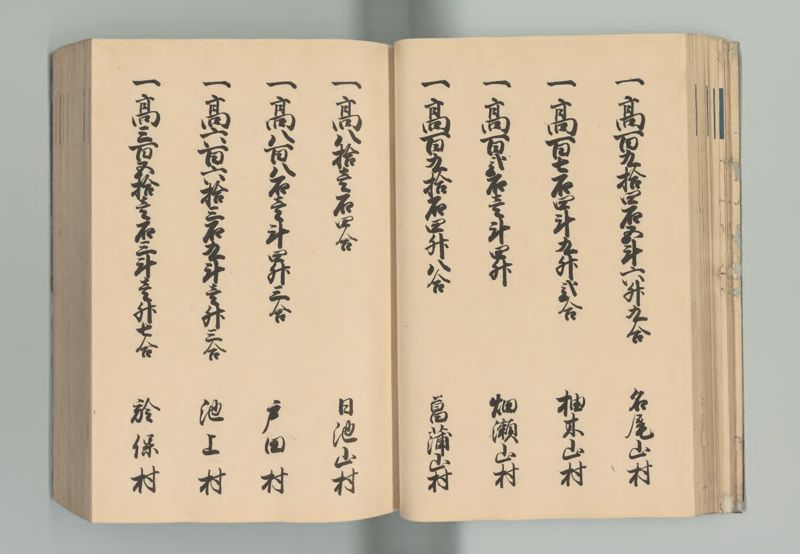 一高百九拾四石五斗六升九合 名尾山村
一高百七石四斗九升弐合 柚木山村
一高百弐石壱斗四升 畑瀬山村
一高百九拾石四升八合 菖蒲山村
一高八拾壱石四合 日池山村
一高八百八石壱斗四升三合 戸田村
一高六百六拾三石九斗壱升三合 池上村
一高三百五拾壱石三斗壱升七合 於保村